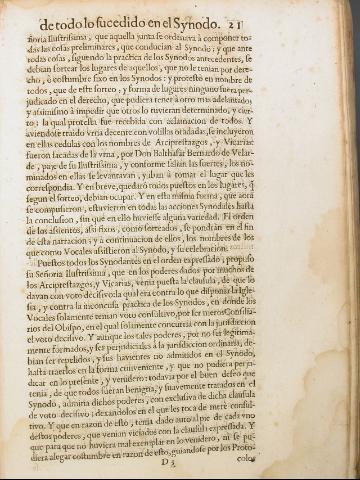 de todo lo sucedido en el Synodo. 21
ñoria Ilustrissima, que aquella junta se ordenava à componer to-
das las cosas preliminares, que conducian al Synodo; y que ante
todas cosas, siguiendo la practica de los Synodos antecedentes, se
debian sortear los lugares de aquellos, que no le tenian por dere-
cho, ò costumbre fixo en los Synodos: y protestò en nombre de
todos, que de este sorteo, y forma de lugares ninguno fuera per-
judicado en el derecho, que pudiera tener à otro mas adelantado;
y assimismo à impedir que otros lo tuvieran determinado, y cier-
to; la qual protesta fue recibida con aclamacion de todos. Y
aviendose traido vna decente con volillas doradas, se incluyeron
en ellas cedulas con los nombres de Arciprestazgos, y Vicarias:
fueron sacadas de la vrna, por Don Balthasar Bernardo de Velar-
de, page de su Ilustrissima, y conforme salian las suertes, los no-
minados en ellas se levantavan, y iban à tomar el lugar que les
correspondia. Y en breve, quedarõ todos puestos en los lugares, q̃
segun el sorteo, debian ocupar. Y en esta misma forma, que aora
se compusieron, estuvieron en todas las acciones Synodales hasta
la conclusion, sin que en ello huviesse alguna variedad. El orden
de los assientos, assi fixos, como sorteados, se pondràn en el fin
de esta narracion; y à continuacion de ellos, los nombres de los
que como Vocales assistieron al Synodo, y su celebracion.
Puestos todos los Synodantes en el orden expressado; propuso
su Señoria Ilustrissima, que en los poderes dados por muchos de
los Arciprestazgos, y Vicarias, venia puesta la clausula, de que lo
davan con voto decisivo; la qual era contra lo que disponia la Igle-
sia, y contra la inconcusa practica de los Synodos, en donde los
Vocales solamente tenian voto consultivo, por ser meros Consilia-
rios del Obispo, en el qual solamente concurria con la jurisdiccion
el voto decisivo. Y aunque los tales poderes, por no ser legitima-
mente formados, y ser perjudiciales à la jurisdiccion ordinaria, de-
bian ser repelidos, y sus havientes no admitidos en el Synodo,
hasta traerlos en la forma conveniente, y que no pudiera perju-
dicar en lo presente, y venidero: todavia por el buen deseo que
tenia, de que todos fueran benigna, y suavemente tratados en el
Synodo, admitia dichos poderes, con exclusiva de dicha clausula
de voto decisivo; dexandolos en el que les toca de mere consul-
tivo. Y que en razon de esto, tenia dado auto al pie de cada vno
destos poderes, que venian viciados con la clausula expressada. Y
que para que no huviera mal exemplar en lo venidero, ni se pu-
diera alegar costumbre en razon de esto, guiandose por los Proto-
D 3 colos